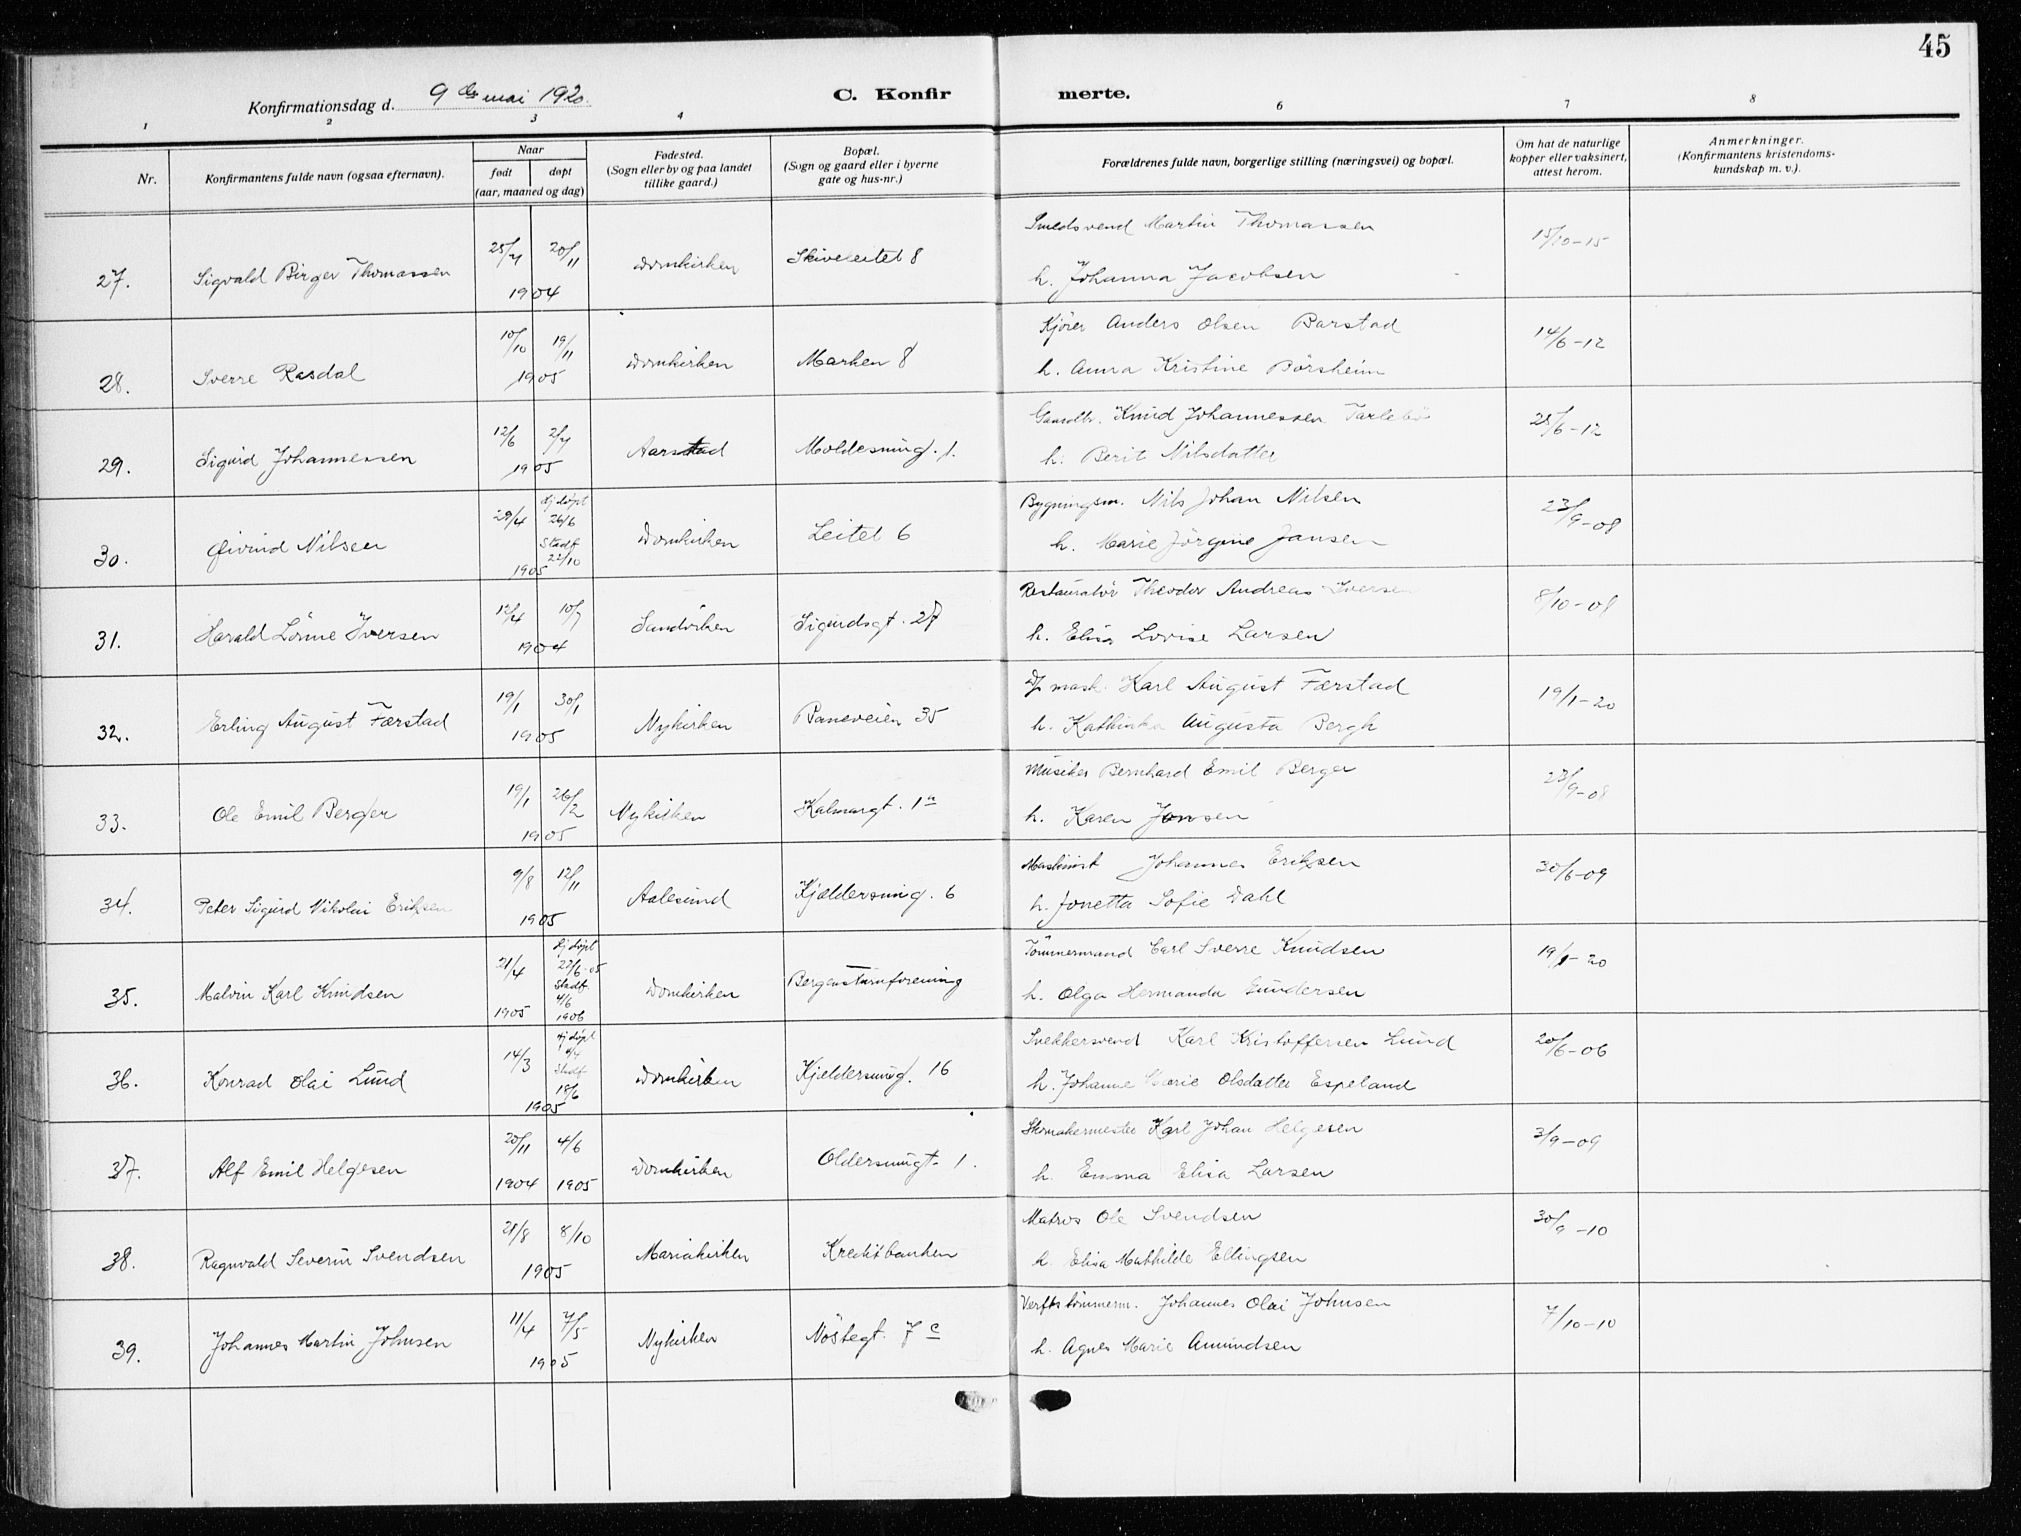 45
Konfirmationsdag d. 9de mai 1920. C. Konfirmerte.
1 2 3 4 6 7 8
Nr.
Konfirmantens fulde navn (ogsaa efternavn).
Naar
født døpt
(aar, maaned og dag)
Fødested.
(Sogn eller by og paa landet
tillike gaard.)
Bopæl.
(Sogn og gaard eller i byerne
gate og hus-nr.)
Forældrenes fulde navn, borgerlige stilling (næringsvei) og bopæl.
Om hat de naturlige
kopper eller vaksinert,
attest herom.
Anmerkninger.
(Konfirmantens kristendoms-
kundskap m. v.).
Smedsvend Martin Thomassen
27. Sigvald Birger Thomassen 20/11 1904 Domkirken 15/10-15
h. Johanna Jacobsen
Kjører Anders Olsen Barstad
28. Sverre Rasdal 10/10 19/11 1905 Domkirken Marken 8 14/6-12
h. Anna Kristine Børsheim
Knud Johannessen
29. Sigurd Johannessen 12/6 1905 Aarstad Moldesmug. 1. 28/6-12
h. Berit Nilsdatter
Bygningsm. Nils Johan Nilsen
30. Øivind Nilsen 29/4 Hj. døpt 26/6 Stadf. 22/10 1905 Domkirken Leitet 6 23/9-08
h. Marie Jørgine Jansen
Restauratør Theodor Andreas Iversen
31. Harald Lönne Iversen 12/4 10/7 1904 Sandviken Sigurdsgt. 27 8/10-08
h. Elisa Lovise Larsen
mask. Karl August Færstad
32. Erling August Færstad 19/1 30/1 1905 Nykirken Baneveien 35 19/1-20
h. Kathinka Augusta Bergh
Musiker Bernhard Emil Berger
33. Ole Emil Berger 19/1 26/2 1905 Nykirken Kalmargt. 1a 23/9-08
h. Karen Jonsen
Maskinist Johannes Eriksen
34. Peter Sigurd Nikolai Eriksen 9/8 12/11 1905 Aalesund Kjældersmug. 6 30/6-09
h. Jonetta Sofie Dahl
Tömmermand Carl Sverre Knudsen
35. Malvin Karl Knudsen 21/4 1905 Hj. døpt 27/6-05 Stadf. 4/6 1906 Domkirken Bergensturnforening 19/1-20
h. Olga Hermanda Gundersen
Snekkersvend Karl Kristoffersen Lund
36. Konrad Olai Lund 14/3 Hj. døpt Stadf. 18/6 1905 Domkirken Kjeldersmug. 16 20/6-06
h. Johanne Marie Olsdatter Espeland
Skomakermester Karl Johan Helgesen
37. Alf Emil Helgesen 20/11 1904 4/6 1905 Domkirken Oldersmugt. 1. 3/9-09
h. Emma Elisa Larsen
Matros Ole Svendsen
38. Ragnvald Severin Svendsen 21/8 8/10 1905 Mariakirken Kreditbanken 30/9-10
h. Elisa Mathilde Ellingsen
Verftstömmerm. Johannes Olai Johnsen
39. Johannes Martin Johnsen 11/4 7/5 1905 Nykirken Nöstegt. 7c 7/10-10
h. Agnes Marie Amundsen